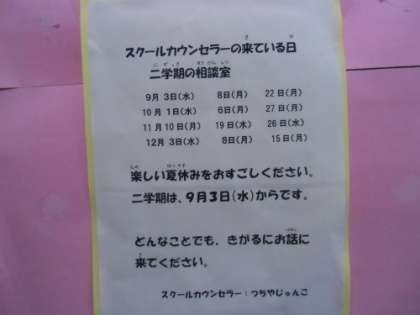 スクールカウンセラーの来ている日
二学期の相談室
9月 3日(水) 8日(月) 22日(月)
10月 1日(水) 6日(月) 27日(月)
11月10日(月) 19日(水) 26日(水)
12月 3日(水) 8日(月) 15日(月)
楽しい夏休みをおすごしください。
二学期は、9月3日(水)からです。
どんなことでも、きがるにお話に
来てください。
スクールカウンセラー：つちやじゅんこ